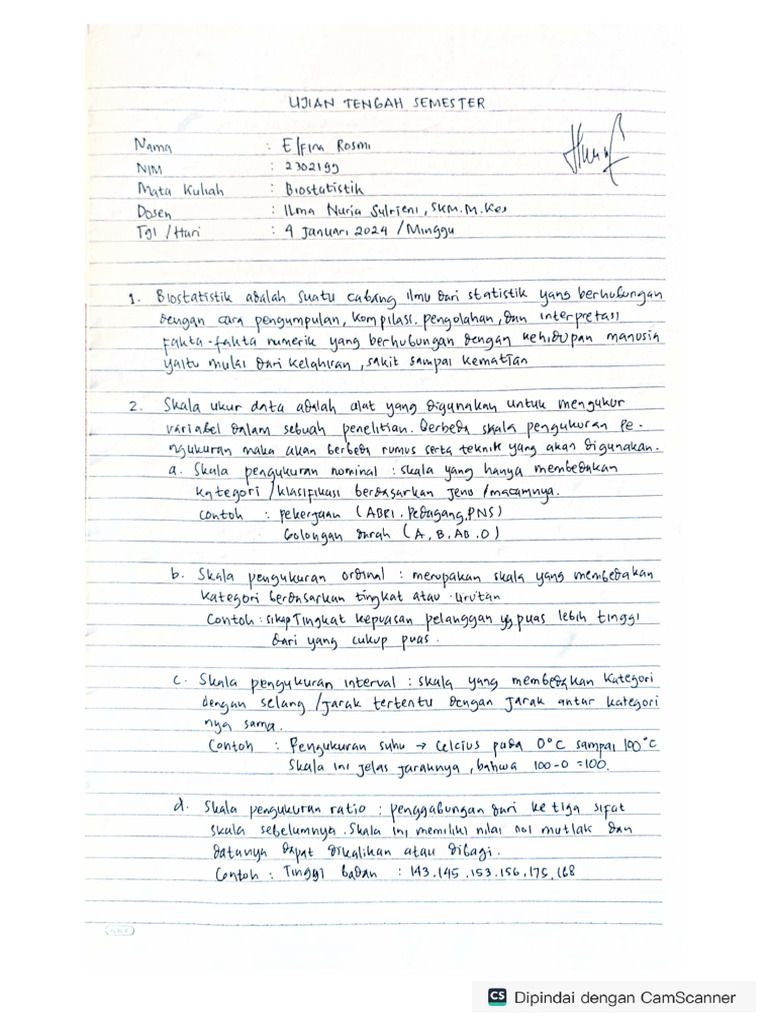 UJIAN TENGAH SEMESTER
Nama : Elfira Rosmi
NIM : 2302199
Mata Kuliah : Biostatistik
Dosen : Ilma Nuria Sulrieni, SKM.M.Kes
Tgl / Hari : 4 Januari 2024 / Minggu
1. Biostatistik adalah suatu cabang ilmu dari statistik yang berhubungan
dengan cara pengumpulan, kompilasi, pengolahan, dan interpretasi
fakta-fakta numerik yang berhubungan dengan kehidupan manusia
yaitu mulai dari kelahiran, sakit sampai kematian
2. Skala ukur data adalah alat yang digunakan untuk mengukur
variabel dalam sebuah penelitian. Berbeda skala pengukuran pe-
ngukuran maka akan berbeda rumus serta teknik yang akan digunakan.
a. Skala pengukuran nominal : skala yang hanya membedakan
kategori / klasifikasi berdasarkan jenis / macamnya.
Contoh : pekerjaan (ABRI, Pedagang, PNS)
Golongan darah (A, B, AB, O)
b. Skala pengukuran ordinal : merupakan skala yang membedakan
kategori berdasarkan tingkat atau urutan
Contoh : sikap Tingkat kepuasan pelanggan yg puas lebih tinggi
dari yang cukup puas.
c. Skala pengukuran interval : skala yang membedakan kategori
dengan selang / jarak tertentu dengan jarak antar kategori
nya sama.
Contoh : Pengukuran suhu → Celcius pada 0°C sampai 100°C
Skala ini jelas jaraknya, bahwa 100-0 = 100.
d. Skala pengukuran ratio : penggabungan dari ketiga sifat
skala sebelumnya. Skala ini memiliki nilai nol mutlak dan
datanya dapat dikalikan atau dibagi.
Contoh : Tinggi badan : 143, 145, 153, 156, 175, 168
CS Dipindai dengan CamScanner